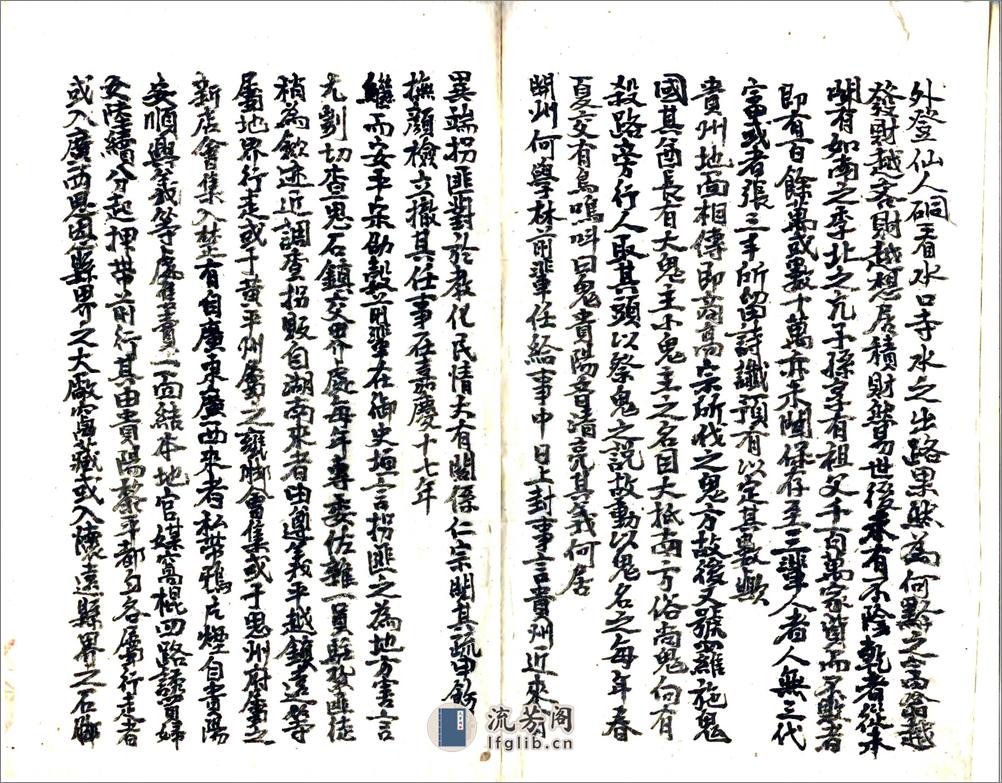 外登仙人硐看水口寺水之出路果然為何黔之富翁越
發財越吝財越想居積財勢易世後未有不陰乾者從未
聞有如南之季北之亢子孫守有祖父千百萬家貲而不敗者
即有百餘萬或數十萬亦未聞保存至三輩人者人無三代
富或者張三丰所留詩讖預有以定其數歟
貴州地面相傳即商高宗所伐之鬼方故後又號羅施鬼
國其酋長有大鬼主小鬼主之名目大抵南方俗尚鬼向有
殺路旁行人取其頭以祭鬼之說故動以鬼名之每年春
夏交有鳥鳴叫曰鬼貴陽音清亮其義何居
開州何學林前輩任給事中日上封事言貴州近來
異端拐匪對於教化民情大有關係仁宗閱其疏申飭
撫顏檢立撤其任事在嘉慶十七年
繼而安平陳劬穀前輩在御史垣言拐匪之為地方害言
尤剴切查思石鎮交界處每年專委佐雜一員駐扎匪徒
稍為斂迹近調查拐販自湖南來者由遵義平越鎮遠等
屬地界行走或于黃平州屬之甕聚會集或于思州府屬之
新店會集入埜有自廣東廣西來者私帶鴉片煙自貴陽
安順興義等處售賣一面結本地官媒窩棍四路誘買婦
女陸續分起押帶前行其由貴陽黎平都勻各屬行走者
或入廣西思因縣界之大廠窩藏或入懷遠縣界之石腳
流芳阁
lfglib.cn